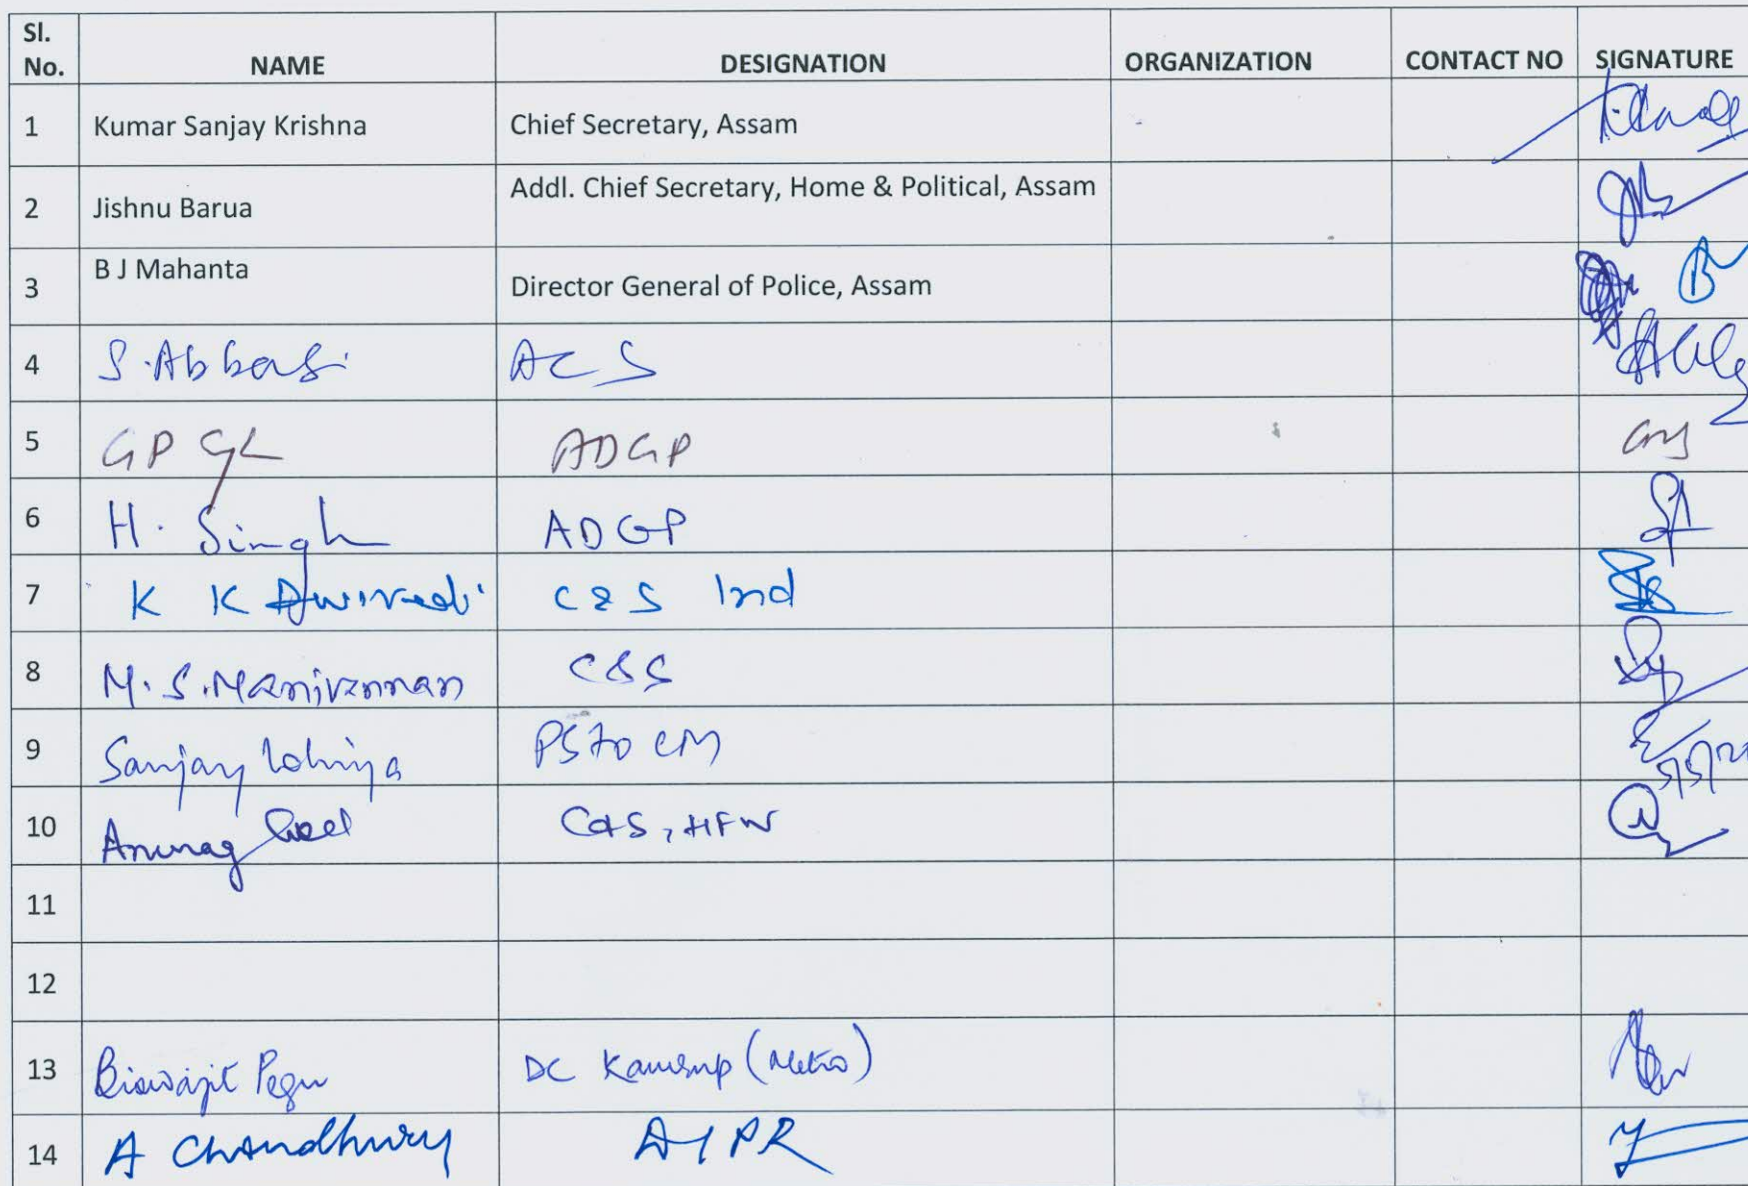 Sl. No. NAME DESIGNATION ORGANIZATION CONTACT NO SIGNATURE
1 Kumar Sanjay Krishna Chief Secretary, Assam
2 Jishnu Barua Addl. Chief Secretary, Home & Political, Assam
3 B J Mahanta Director General of Police, Assam
4 S. Abbasi ACS
5 GP ADGP
6 H. Singh ADGP
7 K K Dwivedi C&S Ind
8 M. S. Manivannan C&S
9 Sanjay Lohiya PS to CM
10 Anurag Goel C&S, HFW
11
12
13 Biswajit Pegu DC Kamrup (Metro)
14 A Choudhury DIPR